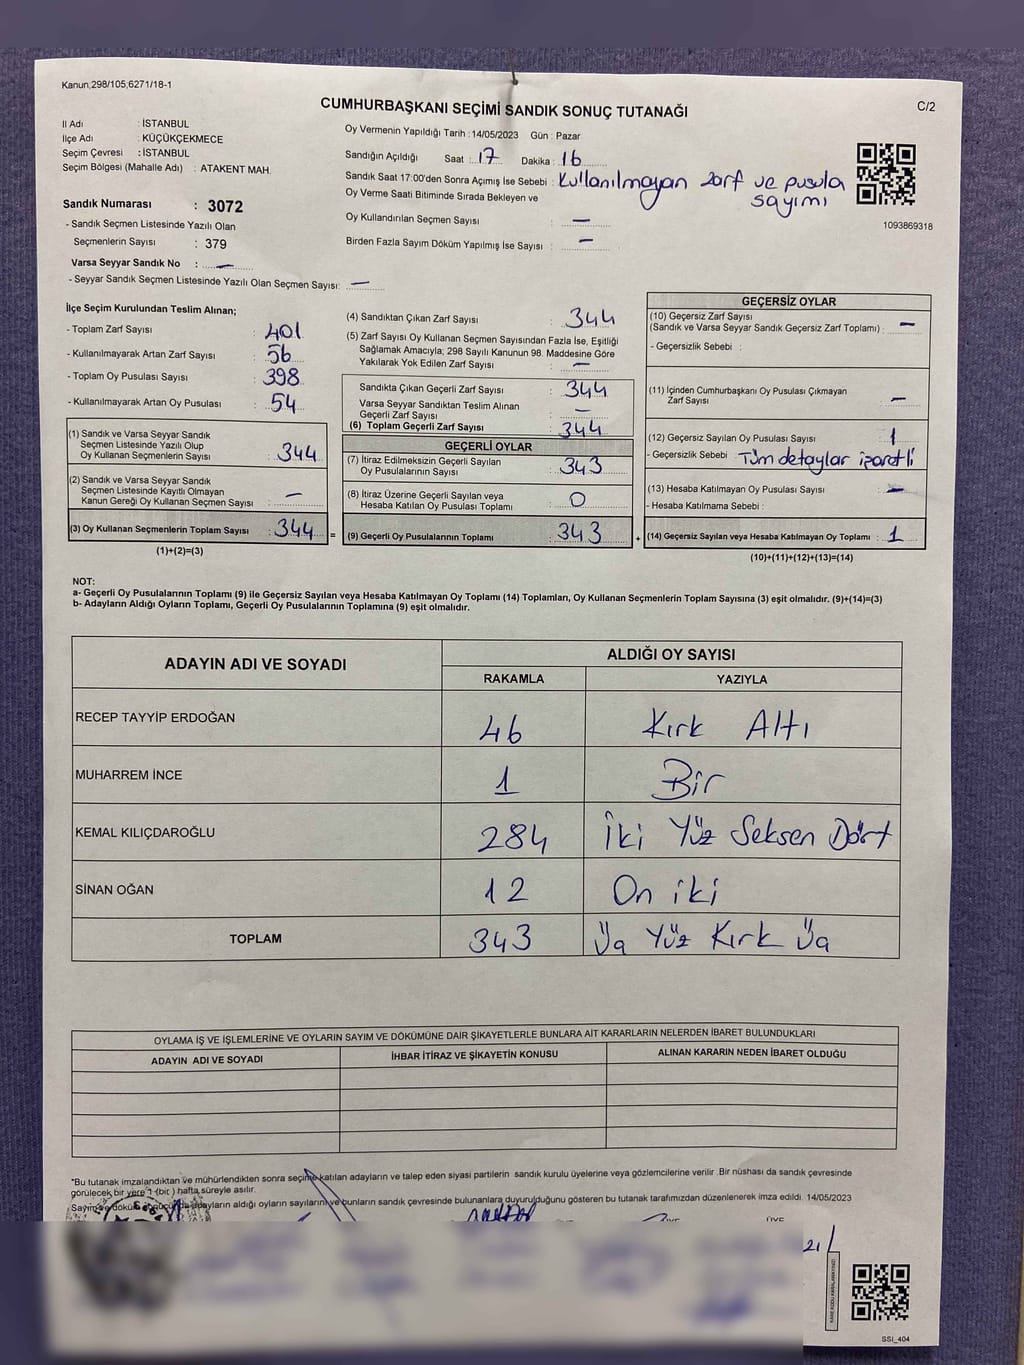 Kanun,298/105;6271/18-1
C/2
CUMHURBAŞKANI SEÇİMİ SANDIK SONUÇ TUTANAĞI
İl Adı : İSTANBUL
İlçe Adı : KÜÇÜKÇEKMECE
Seçim Çevresi : İSTANBUL
Seçim Bölgesi (Mahalle Adı) : ATAKENT MAH.
Sandık Numarası : 3072
- Sandık Seçmen Listesinde Yazılı Olan
Seçmenlerin Sayısı : 379
Varsa Seyyar Sandık No : –
- Seyyar Sandık Seçmen Listesinde Yazılı Olan Seçmen Sayısı: –
Oy Vermenin Yapıldığı Tarih : 14/05/2023 Gün : Pazar
Sandığın Açıldığı Saat : 17 Dakika : 16
Sandık Saat 17:00'den Sonra Açımış İse Sebebi : Kullanılmayan zarf ve pusula sayımı
Oy Verme Saati Bitiminde Sırada Bekleyen ve
Oy Kullandırılan Seçmen Sayısı : –
Birden Fazla Sayım Döküm Yapılmış İse Sayısı : –
1093869318
İlçe Seçim Kurulundan Teslim Alınan;
- Toplam Zarf Sayısı : 401
- Kullanılmayarak Artan Zarf Sayısı : 56
- Toplam Oy Pusulası Sayısı : 398
- Kullanılmayarak Artan Oy Pusulası : 54
(1) Sandık ve Varsa Seyyar Sandık
Seçmen Listesinde Yazılı Olup
Oy Kullanan Seçmenlerin Sayısı : 344
(2) Sandık ve Varsa Seyyar Sandık
Seçmen Listesinde Kayıtlı Olmayan
Kanun Gereği Oy Kullanan Seçmen Sayısı : –
(3) Oy Kullanan Seçmenlerin Toplam Sayısı : 344 =
(1)+(2)=(3)
(4) Sandıktan Çıkan Zarf Sayısı : 344
(5) Zarf Sayısı Oy Kullanan Seçmen Sayısından Fazla İse, Eşitliği
Sağlamak Amacıyla; 298 Sayılı Kanunun 98. Maddesine Göre
Yakılarak Yok Edilen Zarf Sayısı : –
Sandıkta Çıkan Geçerli Zarf Sayısı : 344
Varsa Seyyar Sandıktan Teslim Alınan
Geçerli Zarf Sayısı : –
(6) Toplam Geçerli Zarf Sayısı : 344
GEÇERLİ OYLAR
(7) İtiraz Edilmeksizin Geçerli Sayılan
Oy Pusulalarının Sayısı : 343
(8) İtiraz Üzerine Geçerli Sayılan veya
Hesaba Katılan Oy Pusulası Toplamı : 0
(9) Geçerli Oy Pusulalarının Toplamı : 343 +
GEÇERSİZ OYLAR
(10) Geçersiz Zarf Sayısı
(Sandık ve Varsa Seyyar Sandık Geçersiz Zarf Toplamı) : –
- Geçersizlik Sebebi :
(11) İçinden Cumhurbaşkanı Oy Pusulası Çıkmayan
Zarf Sayısı : –
(12) Geçersiz Sayılan Oy Pusulası Sayısı : 1
- Geçersizlik Sebebi : Tüm detaylar işaretli
(13) Hesaba Katılmayan Oy Pusulası Sayısı : –
- Hesaba Katılmama Sebebi :
(14) Geçersiz Sayılan veya Hesaba Katılmayan Oy Toplamı : 1
(10)+(11)+(12)+(13)=(14)
NOT:
a- Geçerli Oy Pusulalarının Toplamı (9) ile Geçersiz Sayılan veya Hesaba Katılmayan Oy Toplamı (14) Toplamları, Oy Kullanan Seçmenlerin Toplam Sayısına (3) eşit olmalıdır. (9)+(14)=(3)
b- Adayların Aldığı Oyların Toplamı, Geçerli Oy Pusulalarının Toplamına (9) eşit olmalıdır.
ADAYIN ADI VE SOYADI ALDIĞI OY SAYISI
RAKAMLA YAZIYLA
RECEP TAYYİP ERDOĞAN 46 Kırk Altı
MUHARREM İNCE 1 Bir
KEMAL KILIÇDAROĞLU 284 İki Yüz Seksen Dört
SİNAN OĞAN 12 On iki
TOPLAM 343 Üç Yüz Kırk Üç
OYLAMA İŞ VE İŞLEMLERİNE VE OYLARIN SAYIM VE DÖKÜMÜNE DAİR ŞİKAYETLERLE BUNLARA AİT KARARLARIN NELERDEN İBARET BULUNDUKLARI
ADAYIN ADI VE SOYADI İHBAR İTİRAZ VE ŞİKAYETİN KONUSU ALINAN KARARIN NEDEN İBARET OLDUĞU
*Bu tutanak imzalandıktan ve mühürlendikten sonra seçime katılan adayların ve talep eden siyasi partilerin sandık kurulu üyelerine veya gözlemcilerine verilir .Bir nüshası da sandık çevresinde
görülecek bir yere 1 (bir ) hafta süreyle asılır.
Sayım ve döküm adayların aldığı oyların sayılarını ve bunların sandık çevresinde bulunanlara duyurulduğunu gösteren bu tutanak tarafımızdan düzenlenerek imza edildi. 14/05/2023
ÜYE
21/
SSI_404